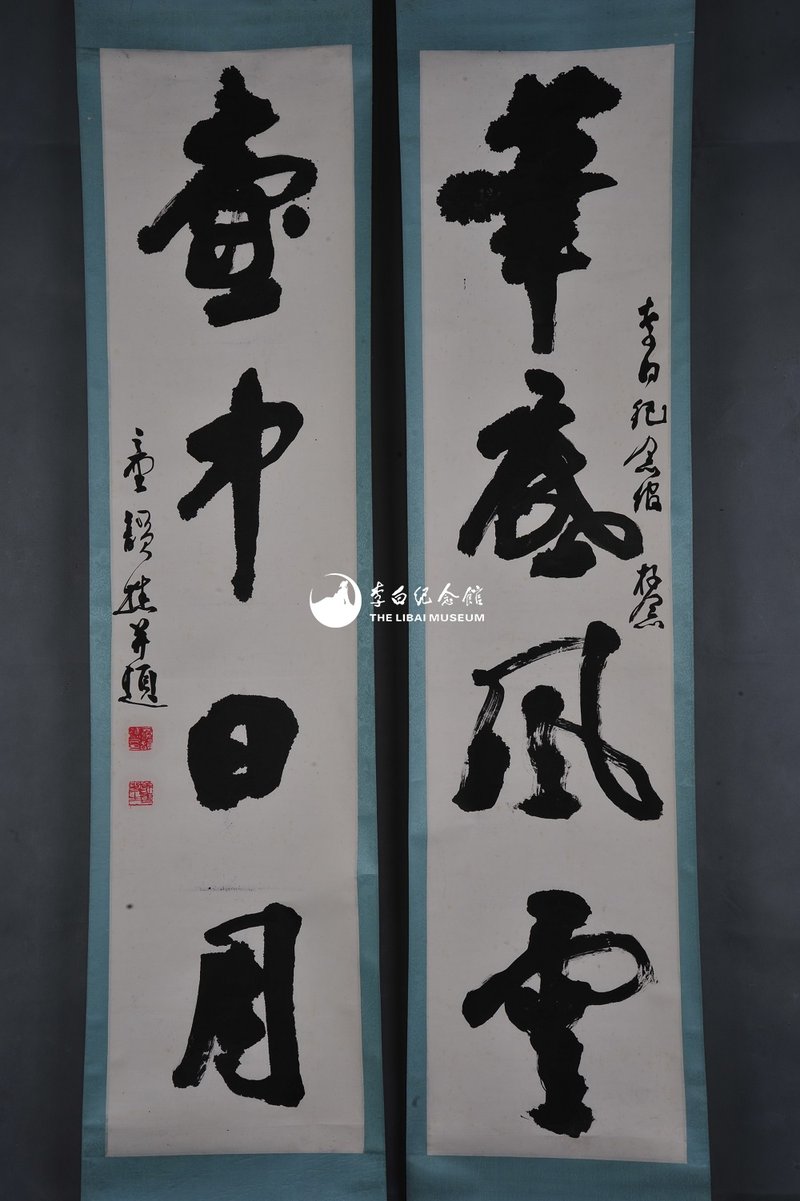 筆底風雲
李白紀念館 存念
壺中日月
並題
李白纪念館
THE LIBAI MUSEUM